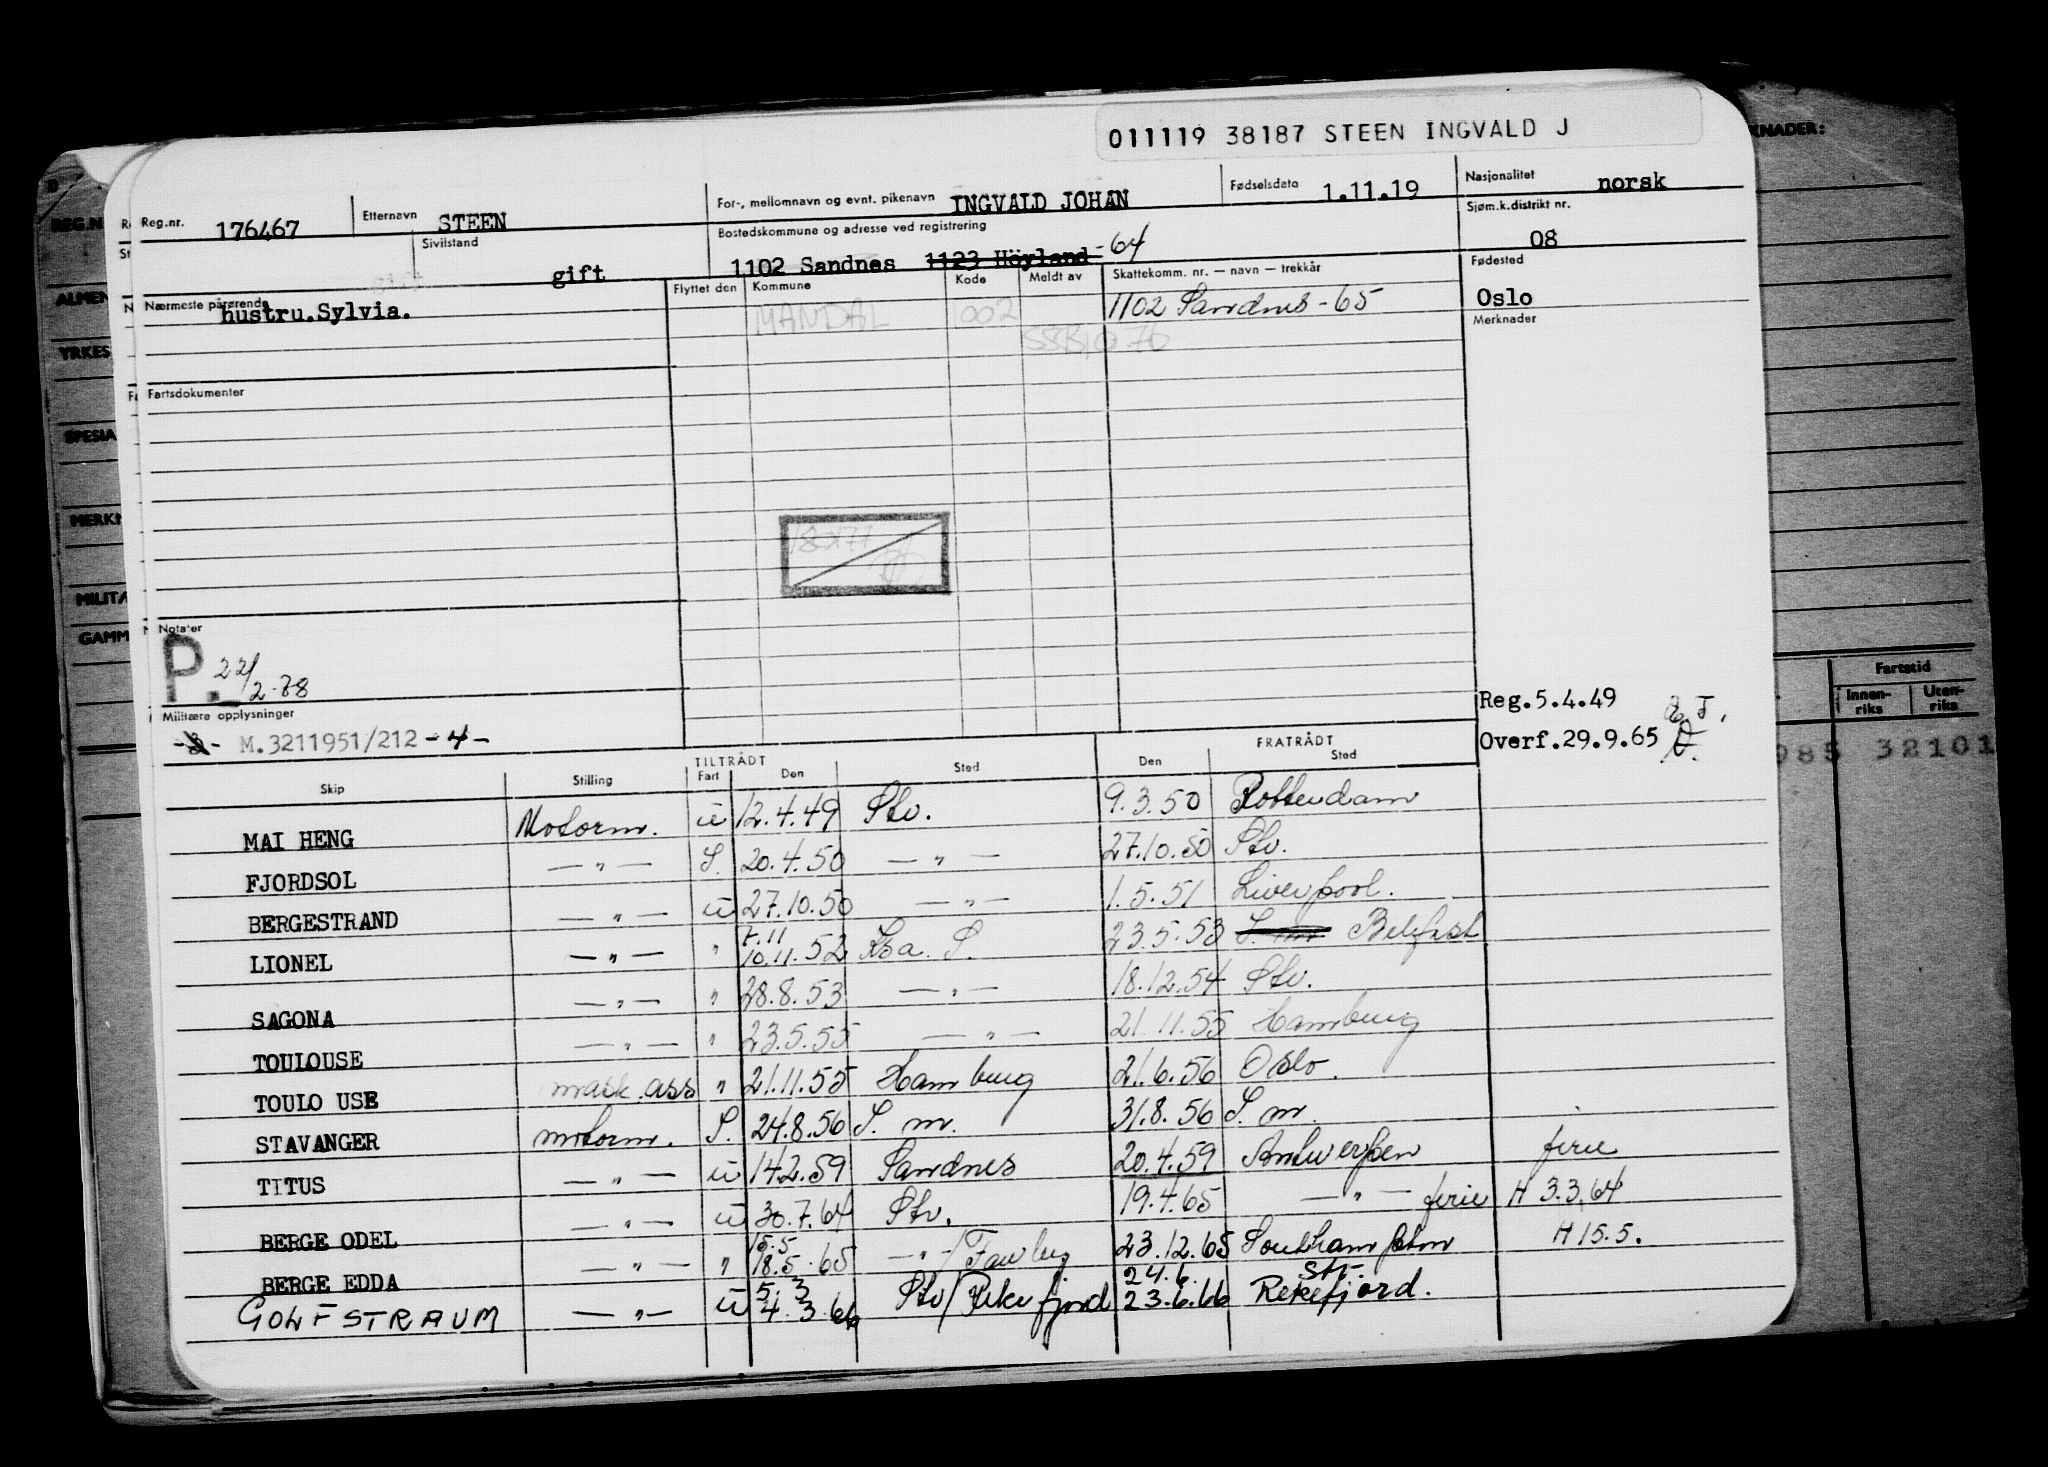 011119 38187 STEEN INGVALD J
Reg.nr. 176467 Etternavn STEEN For-, mellomnavn og evnt. pikenavn INGVALD JOHAN Fødselsdato 1.11.19 Nasjonalitet norsk
Sivilstand gift Bostedskommune og adresse ved registrering 1102 Sandnes 1123 Höyland -64 Sjøm.k.distrikt nr. 08
Nærmeste pårørende hustru.Sylvia. Flyttet den Kommune Kode Meldt av Skattekomm. nr. — navn — trekkår Fødested Oslo
MANDAL 1002 1102 Sandnes - 65 Merknader
Fartsdokumenter
Notater
P. 22/2-78
Militære opplysninger
M.3211951/212 -4-
Reg.5.4.49
Overf.29.9.65
TILTRÅDT FRATRÅDT
Skip Stilling Fart Den Sted Den Sted
MAI HENG Motorm. u 12.4.49 Stv. 9.3.50 Rotterdam
FJORDSOL — " — S. 20.4.50 — " — 27.10.50 Stv.
BERGESTRAND — " — u 27.10.50 — " — 1.5.51 Liverpool.
LIONEL — " — " 7.11 10.11.52 Kra. S. 23.5.53 Belfast
SAGONA — " — " 28.8.53 — " — 18.12.54 Stv.
TOULOUSE — " — " 23.5.55 — " — 21.11.55 Hamburg
TOULO USE mask.ass " 21.11.55 Hamburg 21.6.56 Oslo.
STAVANGER motorm. S. 24.8.56 S. m. 31.8.56 S. m.
TITUS — " — u 14.2.59 Sandnes 20.4.59 Antwerpen ferie
BERGE ODEL — " — u 30.7.64 Stv. 19.4.65 — " — ferie H 3.3.64
BERGE EDDA — " — " 15.5 18.5.65 — " — / Fawley 23.12.65 Southampton H 15.5.
GOLFSTRAUM — " — u 5.3 4.3.66 Stv/Rekefjord 24.6. 23.6.66 Stv. Rekefjord.
KNADER:
REG.N
ALMEN
YRKES
SPESIA
MERKN
MILITÆ
GAMM
Fartstid
Innen-riks Uten-riks
085 32101